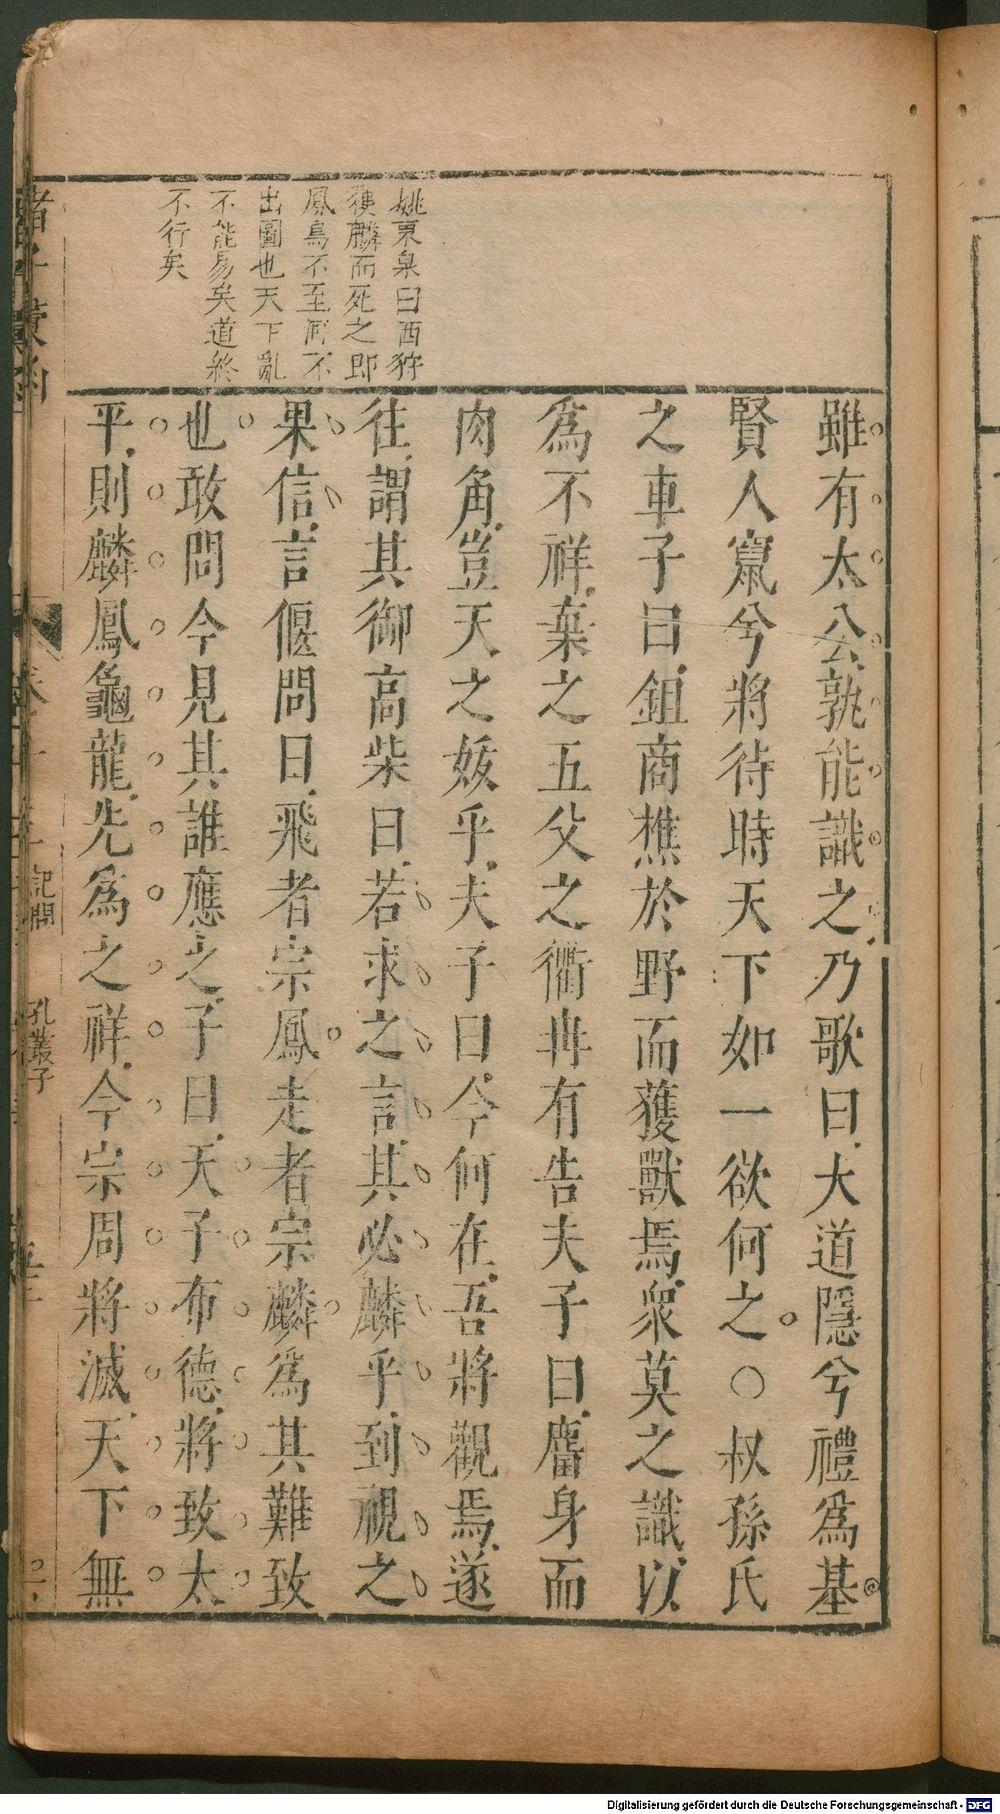 姚東臯曰西狩
獲麟而死之即
鳳鳥不至河不
出圖也天下亂
不能易矣道終
不行矣
雖有太公孰能識之乃歌曰大道隱兮禮爲基
賢人竄兮將待時天下如一欲何之○叔孫氏
之車子曰鉏商樵於野而獲獸焉衆莫之識以
爲不祥棄之五父之衢冉有告夫子曰麕身而
肉角豈天之妖乎夫子曰今何在吾將觀焉遂
往謂其御高柴曰若求之言其必麟乎到視之
果信言偃問曰飛者宗鳳走者宗麟爲其難致
也敢問今見其誰應之子曰天子布德將致太
平則麟鳳龜龍先爲之祥今宗周將滅天下無
記問
孔叢子
Digitalisierung gefördert durch die Deutsche Forschungsgemeinschaft - DFG